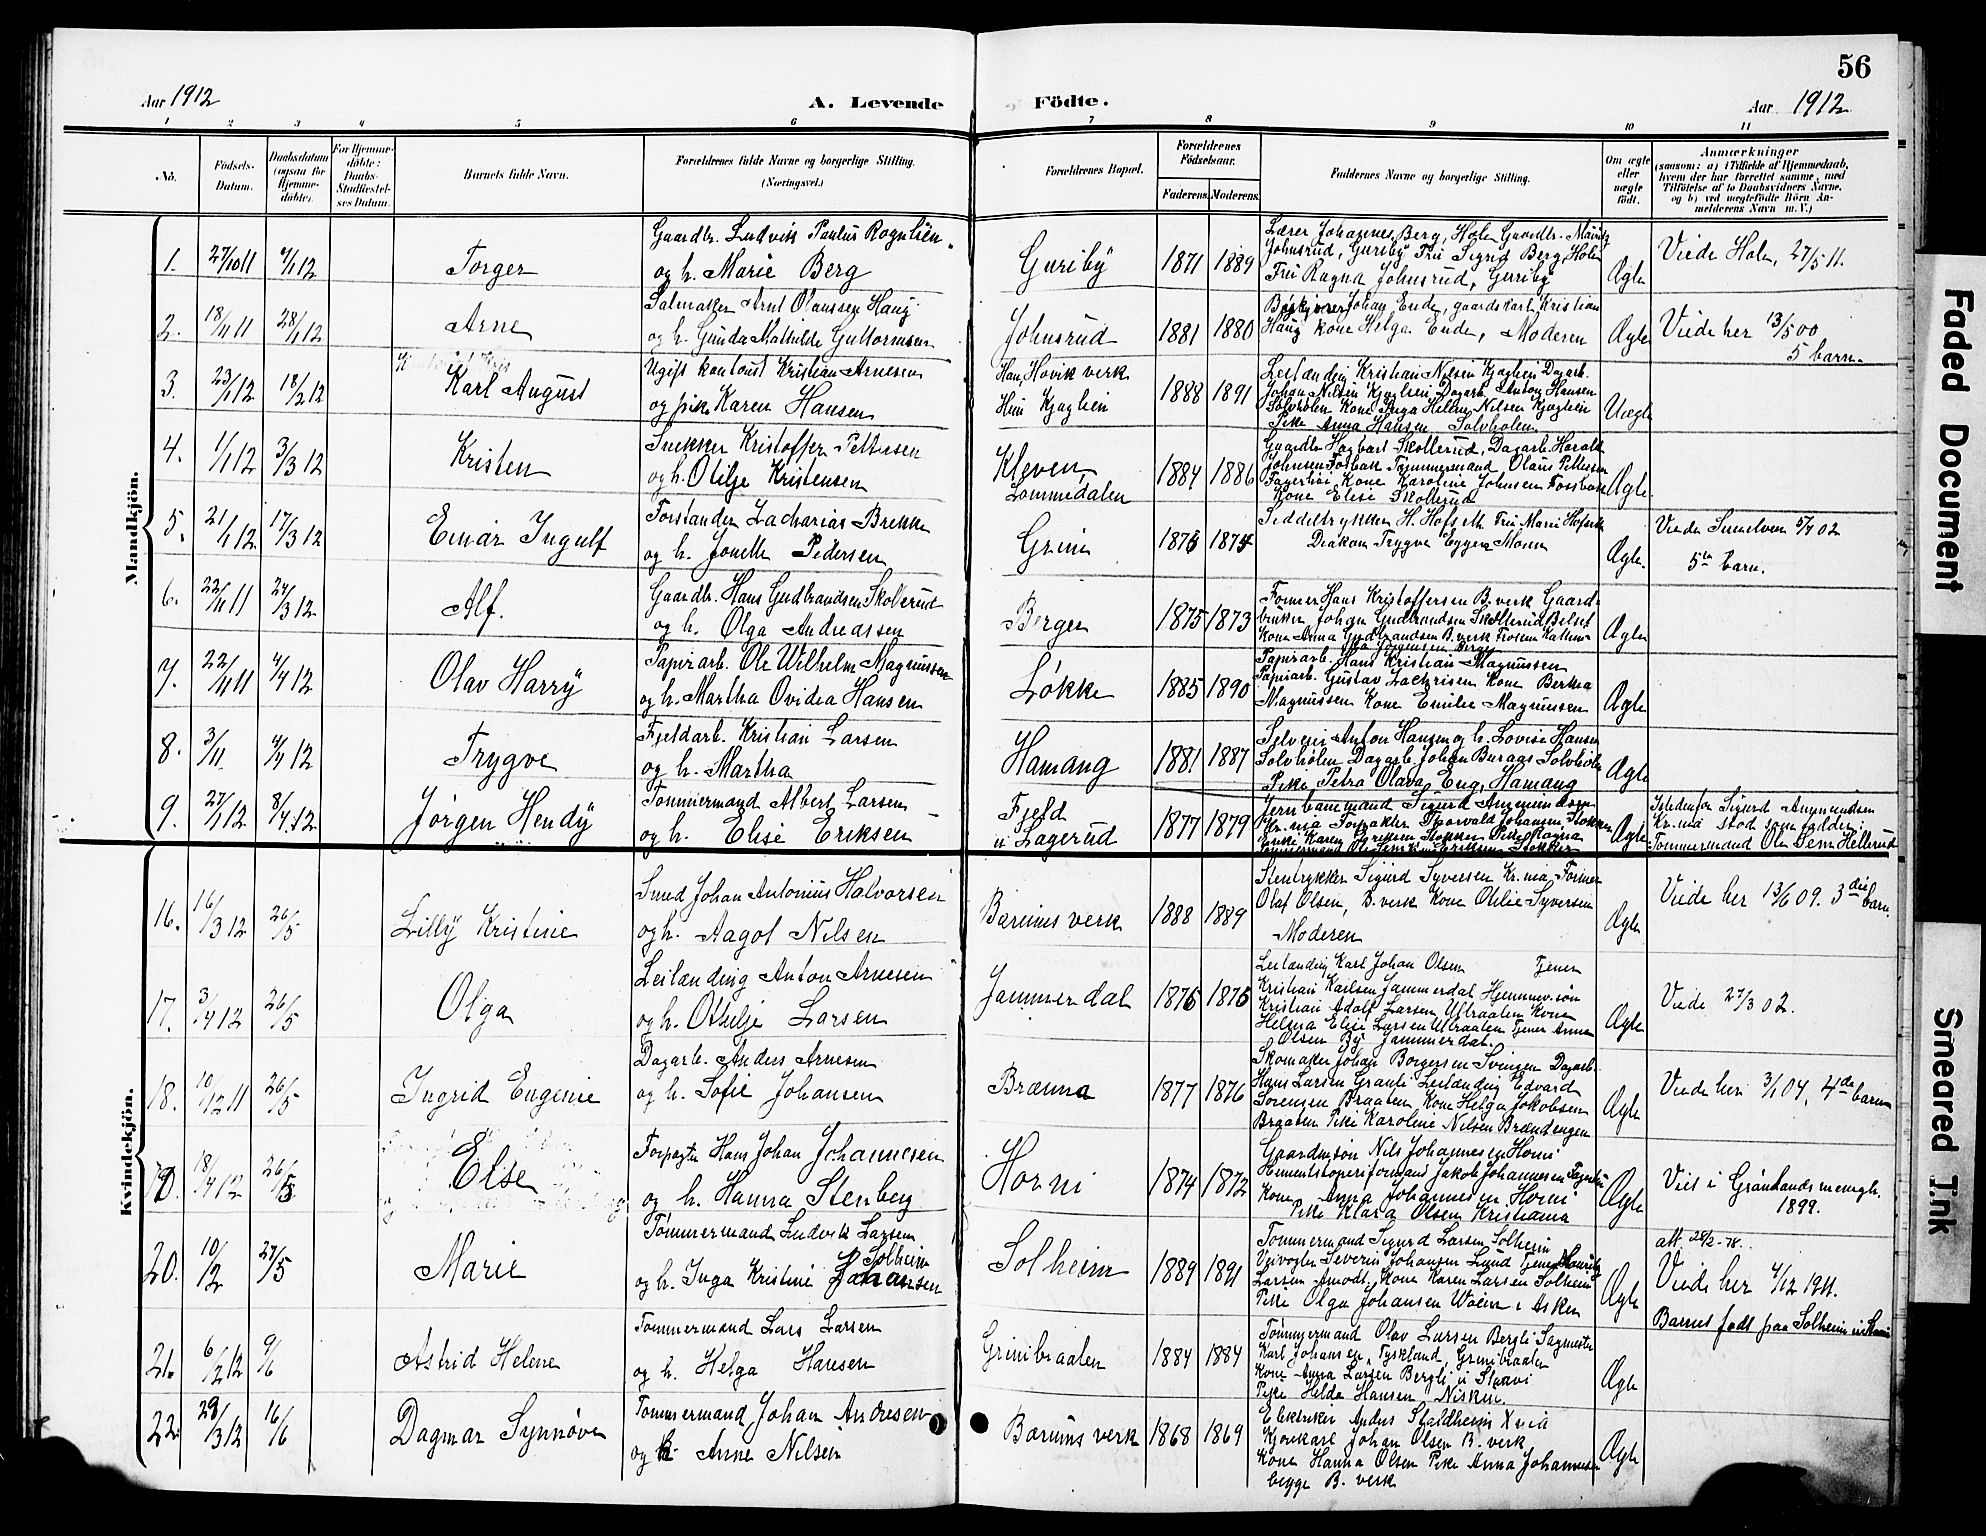 56
Aar 1912
A. Levende Födte.
Aar 1912
1 2 3 4 5 6 7 8 9 10 11
No.
Födsels-
Datum.
Daabsdatum
(ogsaa for
Hjemme-
döbte).
For Hjemme-
döbte:
Daabs-
Stadfæstel-
ses Datum.
Barnets fulde Navn.
Forældrenes fulde Navne og borgerlige Stilling.
(Næringsvei.)
Forældrenes Bopæl.
Forældrenes
Födselsaar.
Faderens. Moderens.
Faddernes Navne og borgerlige Stilling.
Om ægte
eller
uægte
födt.
Anmærkninger
(saasom: a) i Tilfælde af Hjemmedaab,
hvem der har forrettet samme, med
Tilföielse af to Daabsvidners Navne,
og b) ved uægtefödte Börn An-
melderens Navn m. V.)
Mandkjön.
1. 27/10 11 7/1 12 Torger
Gaardbr. Ludvik Paulus Rognlien
og h. Marie Berg
Guriby 1871 1889
Lærer Johannes Berg, Holen Gaardbr. Mauritz
Johnsrud, Guriby Fru Sigrid Berg, Holen
Fru Ragna Johnsrud, Guriby
Ægte
Viede Holen, 27/5 11.
2. 18/11 11 28/1 12 Arne
Salmaker Arnt Olaussen Haug
og h. Gunda Mathilde Guttormsen
Johnsrud 1881 1880
Johan Ende, gaardskarl Kristian
Haug Kone Helga Ende, Moderen
Ægte
Viede her 13/5 00
5 barn.
3. 23/1 12 18/2 12 Karl August
Ugift kontorist Kristian Arnesen
og pike Karen Hansen
Han, Hovik verk
Hun Kjaglien
1888 1891
Leilænding Kristian Nilsen Kjaglien Dagarb.
Johan Nilsen Kjaglien Dagarb. Anton Hansen
Solvholen Kone Inga Helene Nilsen Kjaglien
Pike Anna Hansen Solvholen
Uægte
4. 1/1 12 3/3 12 Kristen
Snekker Kristoffer Pettersen
og h. Otilje Kristensen
Kleven
Lommedalen
1884 1886
Gaardbr Hagbart Skollerud, Dagarb. Harald
Johnsen Fosbak Tømmermand Olaus Pettersen
Fagerlivi, Kone Karoline Johnsen Fossbak
Kone Elise Skollerud
Ægte.
5. 21/1 12 17/3 12 Einar Ingulf
Forstander Zacharias Brekke
og h. Jonette Pedersen
Grini 1873 1874
Seddeltrykker H. Hofseth Fru Marri Hofseth
Diakon Trygve Eggen Moren
Ægte.
Viede Sunelven 5/7 02
5te barn.
6. 22/11 11 24/3 12 Alf.
Gaardbr. Hans Gudbrandsen Skollerud
og h. Olga Andreassen
Berger 1875 1873
Former Hans Kristoffersen B. verk Gaard-
bruker Johan Gudbrandsen Skollerud Belset
Kone Anna Gudbrandsen B. verk Frøken Kathin-
ka Jørgensen Berge
Ægte
7. 22/11 11 4/4 12 Olav Harry
Papirarb. Ole Wilhelm Magnussen
og h. Martha Ovidia Hansen
Løkke 1885 1890
Papirarb. Hans Kristian Magnussen
Papirarb. Gustav Zachrisen Kone Bertha
Magnussen Kone Emilie Magnussen
Ægte
8. 3/11 4/4 12 Trygve
Fjeldarb. Kristian Larsen
og h. Martha
Hamang 1881 1887
Selveier Anton Hansen og h. Lovise Hansen
Solvholen Dagarb. Johan Buraas Solvholen
Pike Petra Olava Eng, Hamang
Ægte
9. 27/1 12 8/4 12 Jørgen Hendy
Tømmermand Albert Larsen
og h. Elise Eriksen
Fjeld
u Lagerud
1877 1879
Jernbanemand Sigurd Ammundsen
Kr.nia Forpakter Thorvald Johansen Stokker
Enke Karen Eriksen Stokker Pike Ragna
Eriksen Stokker
Ægte
Istedenfor Sigurd Ammundsen
Kr.nia stod som fadder:
Tømmermand Ole Hellerud
Kvindekjön.
16. 16/3 12 26/5 Lilly Kristine
Smed Johan Antonius Halvorsen
og h. Aagot Nilsen
Bærums verk 1888 1889
Stentrykker Sigurd Syversen Kr.nia, Former
Olaf Olsen, B. verk Kone Otilie Syversen
Moderen
Ægte
Viede her 13/6 09. 3die barn.
17. 3/4 12 26/5 Olga
Leilænding Anton Arnesen
og h. Othilje Larsen
Jammerdal 1876 1875
Leilænding Karl Johan Olsen Tjener
Kristian Karlsen Jammerdal Hjemmev. søn
Kristian Adolf Larsen Ulvraaten Kone
Helma Elise Larsen Ulvraaten Tjener Anna
Olsen By Jammerdal.
Ægte
Viede 27/3 02.
18. 10/12 11 26/5 Ingrid Eugenie
Dagarb. Anders Arnesen
og h. Sofie Johansen
Brænna 1877 1876
Skomaker Johan Borgersen Svingen Dagarb.
Hans Larsen Granli Leilænding Edvard
Sørensen Braaten Kone Helga Jakobsen
Braaten Pike Karoline Nilsen Brændengen
Ægte
Viede her 3/1 04, 4de barn
19. 18/4 12 26/5 Else
Forpagter Hans Johan Johannesen
og h. Hanna Stenberg
Horni 1874 1872
Gaardmsøn Nils Johannesen Horni
Cementstøperiformand Jakob Johannesen
Kone Anna Johannesen Horni
Pike Klara Olsen Kristiania
Ægte
Viet i Grønlands menigh.
1899.
20. 10/12 27/5 Marie
Tømmermand Ludvik Larsen
Solheim
og h. Inga Kristine Johansen
Solheim 1889 1891
Tømmermand Sigurd Larsen Solheim
Veivogter Severin Johansen Lund Tjener Mauritz
Larsen Amodt, Kone Karen Larsen Solheim
Pike Olga Johansen Woien i Asker
Ægte
att. 28/2-78.
Viede her 4/12 1911.
Barnet født paa Solheim
21. 6/2 12 9/6 Astrid Helene
Tømmermand Lars Larsen
og h. Helga Hansen
Grinibraaten 1884 1884
Tømmermand Olav Larsen Bergli Sagmester
Karl Johansen, Tyskland, Grinibraaten
Kone Anna Larsen Bergli u Staavi
Pike Hilda Hansen Nisken
Ægte
22. 29/3 12 16/6 Dagmar Synnøve
Tømmermand Johan Andresen
og h. Anne Nilsen
Bærums verk 1868 1869
Elektriker Anders Staldheim Xnia
Kjørekarl Johan Olsen B. verk
Kone Hanna Olsen Pike Anna Johannesen
begge B. verk
Ægte
Faded Document
Smeared Ink